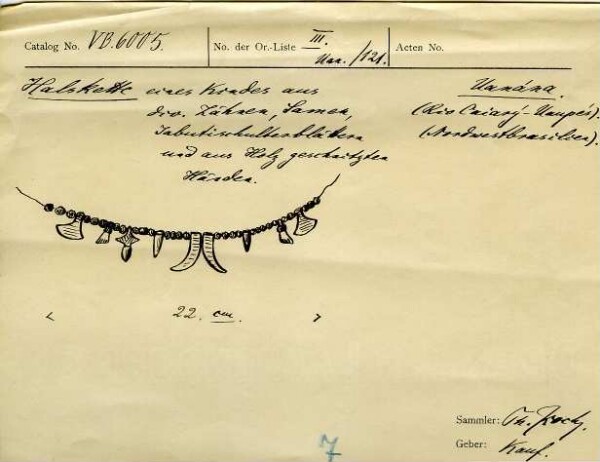 Catalog No. VB.6005.
No. der Or.-Liste III. Uan./121.
Acten No.
Halskette eines Kindes aus
div. Zähnen, Samen,
Jabutischulterblättern
und aus Holz geschnitzten
Händen.
Uanána.
(Rio Caiarý-Uaupés).
(Nordwestbrasilien).
< 22. cm. >
7
Sammler: Th. Koch.
Geber: Kauf.